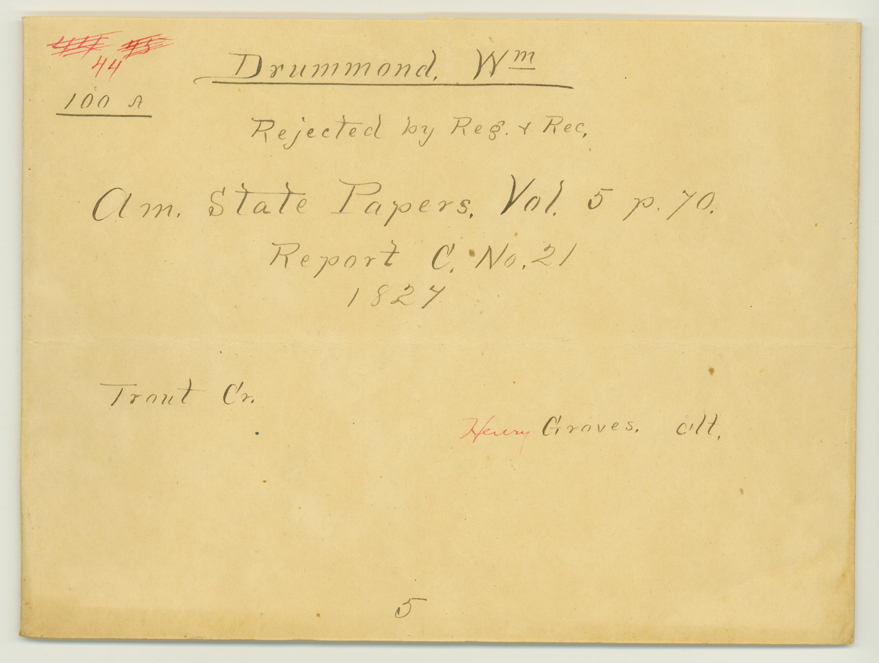 44
100 a
Drummond, Wm
Rejected by Reg. & Rec,
Am. State Papers, Vol. 5 p. 70.
Report C. No. 21
1827
Trout Cr.
Henry Groves. alt.
5